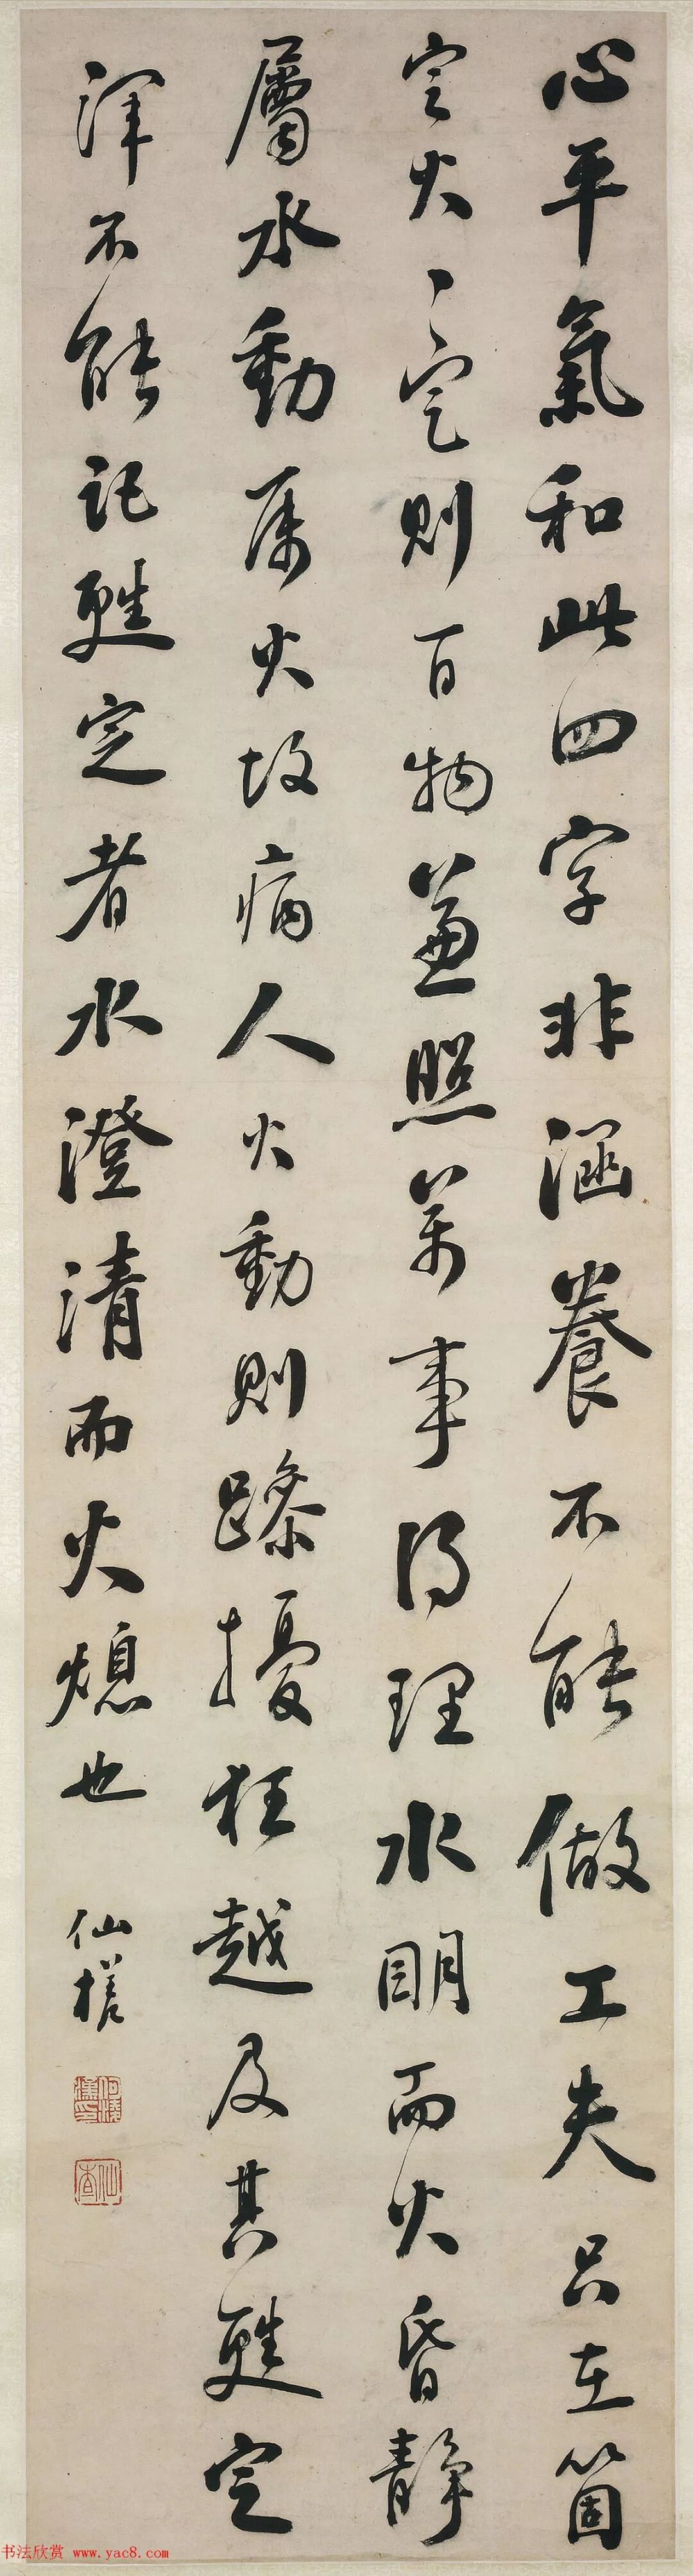 心平氣和此四字非涵養不能做工夫只在箇
定火〻定則百物兼照萬事得理水明而火昏靜
屬水動属火故病人火動則躁擾狂越及其甦定
渾不能記甦定者水澄清而火熄也
仙槎
何凌漢印
仙查
书法欣赏 www.yac8.com